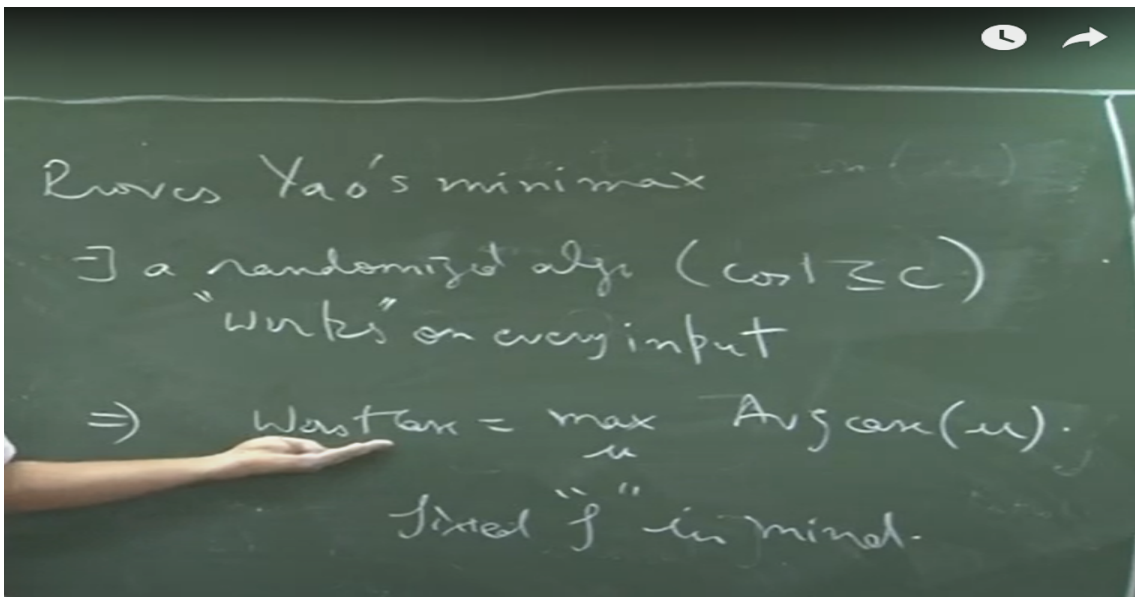 Proves Yao's minimax
∃ a randomized algo (cost ≤ C)
"works" on every input
⇒ Worst case = max Avg case (μ).
μ
fixed "f" in mind.